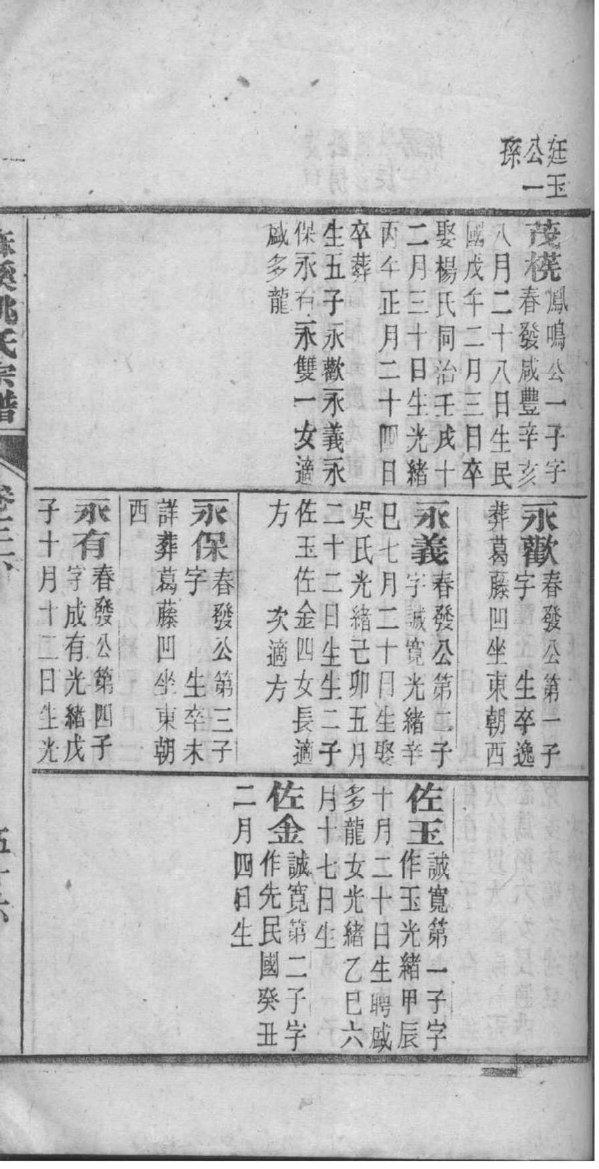 廷玉
公一
孫
茂榥鳳鳴公一子字
春發咸豐辛亥
八月二十八日生民
國戊午二月三日卒
娶楊氏同治壬戌十
二月三十日生光緒
丙午正月二十四日
卒葬
生五子永歡永義永
保永有永雙一女適
戚多龍
永歡春發公第一子
字 生卒逸
葬葛藤凹坐東朝西
永義春發公第二子
字誠寬光緒辛
巳七月二十日生娶
吳氏光緒己卯五月
二十二日生生二子
佐玉佐金四女長適
方 次適方
永保春發公第三子
字 生卒未
詳葬葛藤凹坐東朝
西
永有春發公第四子
字成有光緒戊
子十月十二日生光
佐玉誠寬第一子字
作玉光緒甲辰
十月二十日生聘戚
多龍女光緒乙巳六
月十七日生
佐金誠寬第二子字
作先民國癸丑
二月四日生
溪姚氏宗譜